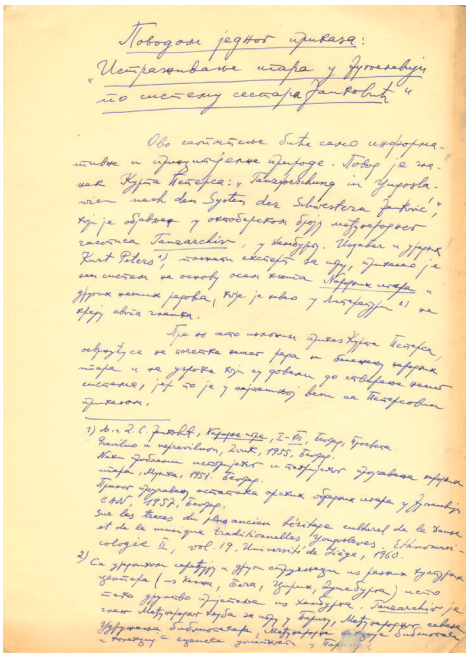 Поводом једног приказа:
"Истраживање игара у Југославији
по систему сестара Јанковић"
Ово саопштење биће само информа-
тивне и принципијелне природе. Повод је чла-
нак Курта Петерса: "Tanzforschung in Jugosla-
wien nach dem System der Schwestern Janković",
који је објављен у октобарском броју међународног
часописа Tanzarchiv, у Хамбургу. Издавач и уредник
Kurt Peters²⁾, познати експерт за игру, приказао је
наш систем на основу осам књига Народних игара и
других наших радова, које је навео у литератури ¹⁾ на
крају свога чланка.
Пре но што изложим приказ Курта Петерса,
осврнућу се на почетке нашег рада на бележењу народних
игара и на узроке који су довели до стварања нашег
система, јер то је у најтешњој вези са Петерсовим
приказом.
1) Љ. и Д. С. Јанковић, Народне игре, I-VIII, Београд, Просвета.
Pravilno i nepravilnon, Zvuk, 1955, Београд.
Неки проблеми историјског и теоријског проучавања народних
игара, Музика, 1951. Београд.
Прилог проучавању остатака орских обредних игара у Југославији
САН, 1957, Београд.
Sur les traces du plus ancien héritage culturel de la danse
et de la musique traditionnelles Yougoslaves, Ethnomusi-
cologie II, vol. 19. Université de Liège, 1960.
2) Са уредником сарађују и други стручњаци из разних културних
центара (из Келна, Беча, Цириха, Линебурга) исто
тако друштво пријатеља из Хамбурга. Tanzarchiv је
члан Међународног клуба за игру у Паризу, Међународног савеза
Удружења библиотекара, Међународне библиотека
и колекција сценске уметности у